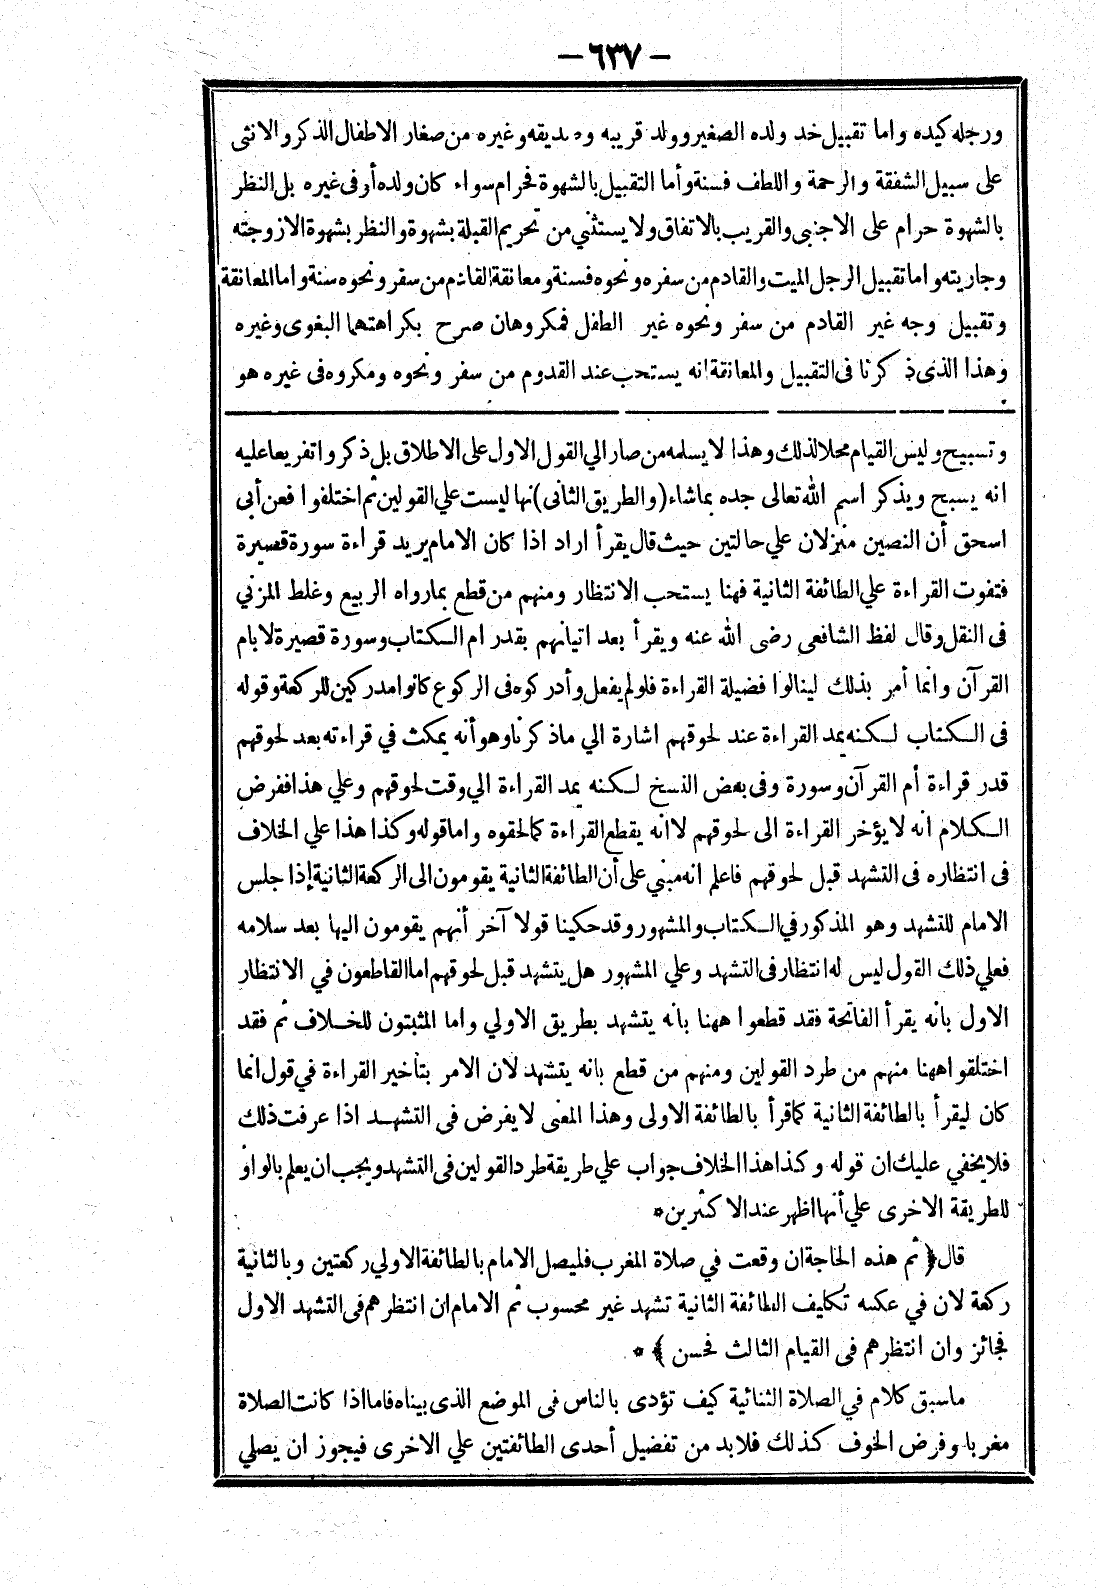 — ٦٣٧ —
ورجله كيده واما تقبيل خد ولده الصغير وولد قريبه وصديقه وغيره من صغار الاطفال الذكر والانثى
على سبيل الشفقة والرحمة واللطف فسنة وأما التقبيل بالشهوة فحرام سواء كان ولده أو في غيره بل النظر
بالشهوة حرام على الاجنبى والقريب بالاتفاق ولا يستثني من تحريم القبلة بشهوة والنظر بشهوة الا زوجته
وجاريته واما تقبيل الرجل الميت والقادم من سفره ونحوه فسنة ومعانقة القادم من سفر ونحوه سنة واما المعانقة
وتقبيل وجه غير القادم من سفر ونحوه غير الطفل فمكروهان صرح بكراهتهما البغوى وغيره
وهذا الذى ذكرنا فى التقبيل والمعانقة انه يستحب عند القدوم من سفر ونحوه ومكروه فى غيره هو
وتسبيح وليس القيام محلا لذلك وهذا لا يسلمه من صار الي القول الاول على الاطلاق بل ذكروا تفريعا عليه
انه يسبح ويذكر اسم الله تعالى جده بما شاء (والطريق الثانى) نها ليست علي القولين ثم اختلفوا فعن أبى
اسحق أن النصين منزلان علي حالتين حيث قال يقرأ اراد اذا كان الامام يريد قراءة سورة قصيرة
فتفوت القراءة علي الطائفة الثانية فهنا يستحب الانتظار ومنهم من قطع بما رواه الربيع وغلط المزنى
فى النقل وقال لفظ الشافعى رضى الله عنه ويقرأ بعد اتيانهم بقدر ام الكتاب وسورة قصيرة لا بام
القرآن وانما أمر بذلك لينالوا فضيلة القراءة فلو لم يفعل وأدركوه فى الركوع كانوا مدركين للركعة وقوله
فى الكتاب لكنه يمد القراءة عند لحوقهم اشارة الي ما ذكرنا وهو أنه يمكث في قراءته بعد لحوقهم
قدر قراءة أم القرآن وسورة وفى بعض النسخ لكنه يمد القراءة الي وقت لحوقهم وعلي هذا ففرض
الكلام انه لا يؤخر القراءة الى لحوقهم لا انه يقطع القراءة كما لحقوه واما قوله وكذا هذا علي الخلاف
فى انتظاره فى التشهد قبل لحوقهم فاعلم انه مبني على أن الطائفة الثانية يقومون الى الركعة الثانية إذا جلس
الامام للتشهد وهو المذكور في الكتاب والمشهور وقد حكينا قولا آخر أنهم يقومون اليها بعد سلامه
فعلي ذلك القول ليس له انتظار فى التشهد وعلي المشهور هل يتشهد قبل لحوقهم اما القاطعون في الانتظار
الاول بانه يقرأ الفاتحة فقد قطعوا ههنا بانه يتشهد بطريق الاولي واما المثبتون للخلاف ثم فقد
اختلفوا ههنا منهم من طرد القولين ومنهم من قطع بانه يتشهد لان الامر بتأخير القراءة في قول انما
كان ليقرأ بالطائفة الثانية كما قرأ بالطائفة الاولى وهذا المعنى لا يفرض فى التشهد اذا عرفت ذلك
فلا يخفي عليك ان قوله وكذا هذا الخلاف جواب علي طريقة طرد القولين فى التشهد ويجب ان يعلم بالواو
للطريقة الاخرى علي أنها اظهر عند الاكثرين *
قال ﴿ ثم هذه الحاجة ان وقعت في صلاة المغرب فليصل الامام بالطائفة الاولي ركعتين وبالثانية
ركعة لان في عكسه تكليف الطائفة الثانية تشهد غير محسوب ثم الامام ان انتظرهم فى التشهد الاول
فجائز وان انتظرهم فى القيام الثالث فحسن ﴾ *
ما سبق كلام في الصلاة الثنائية كيف تؤدى بالناس فى الموضع الذى بيناه فاما اذا كانت الصلاة
مغربا وفرض الخوف كذلك فلابد من تفضيل أحدى الطائفتين علي الاخرى فيجوز ان يصلي